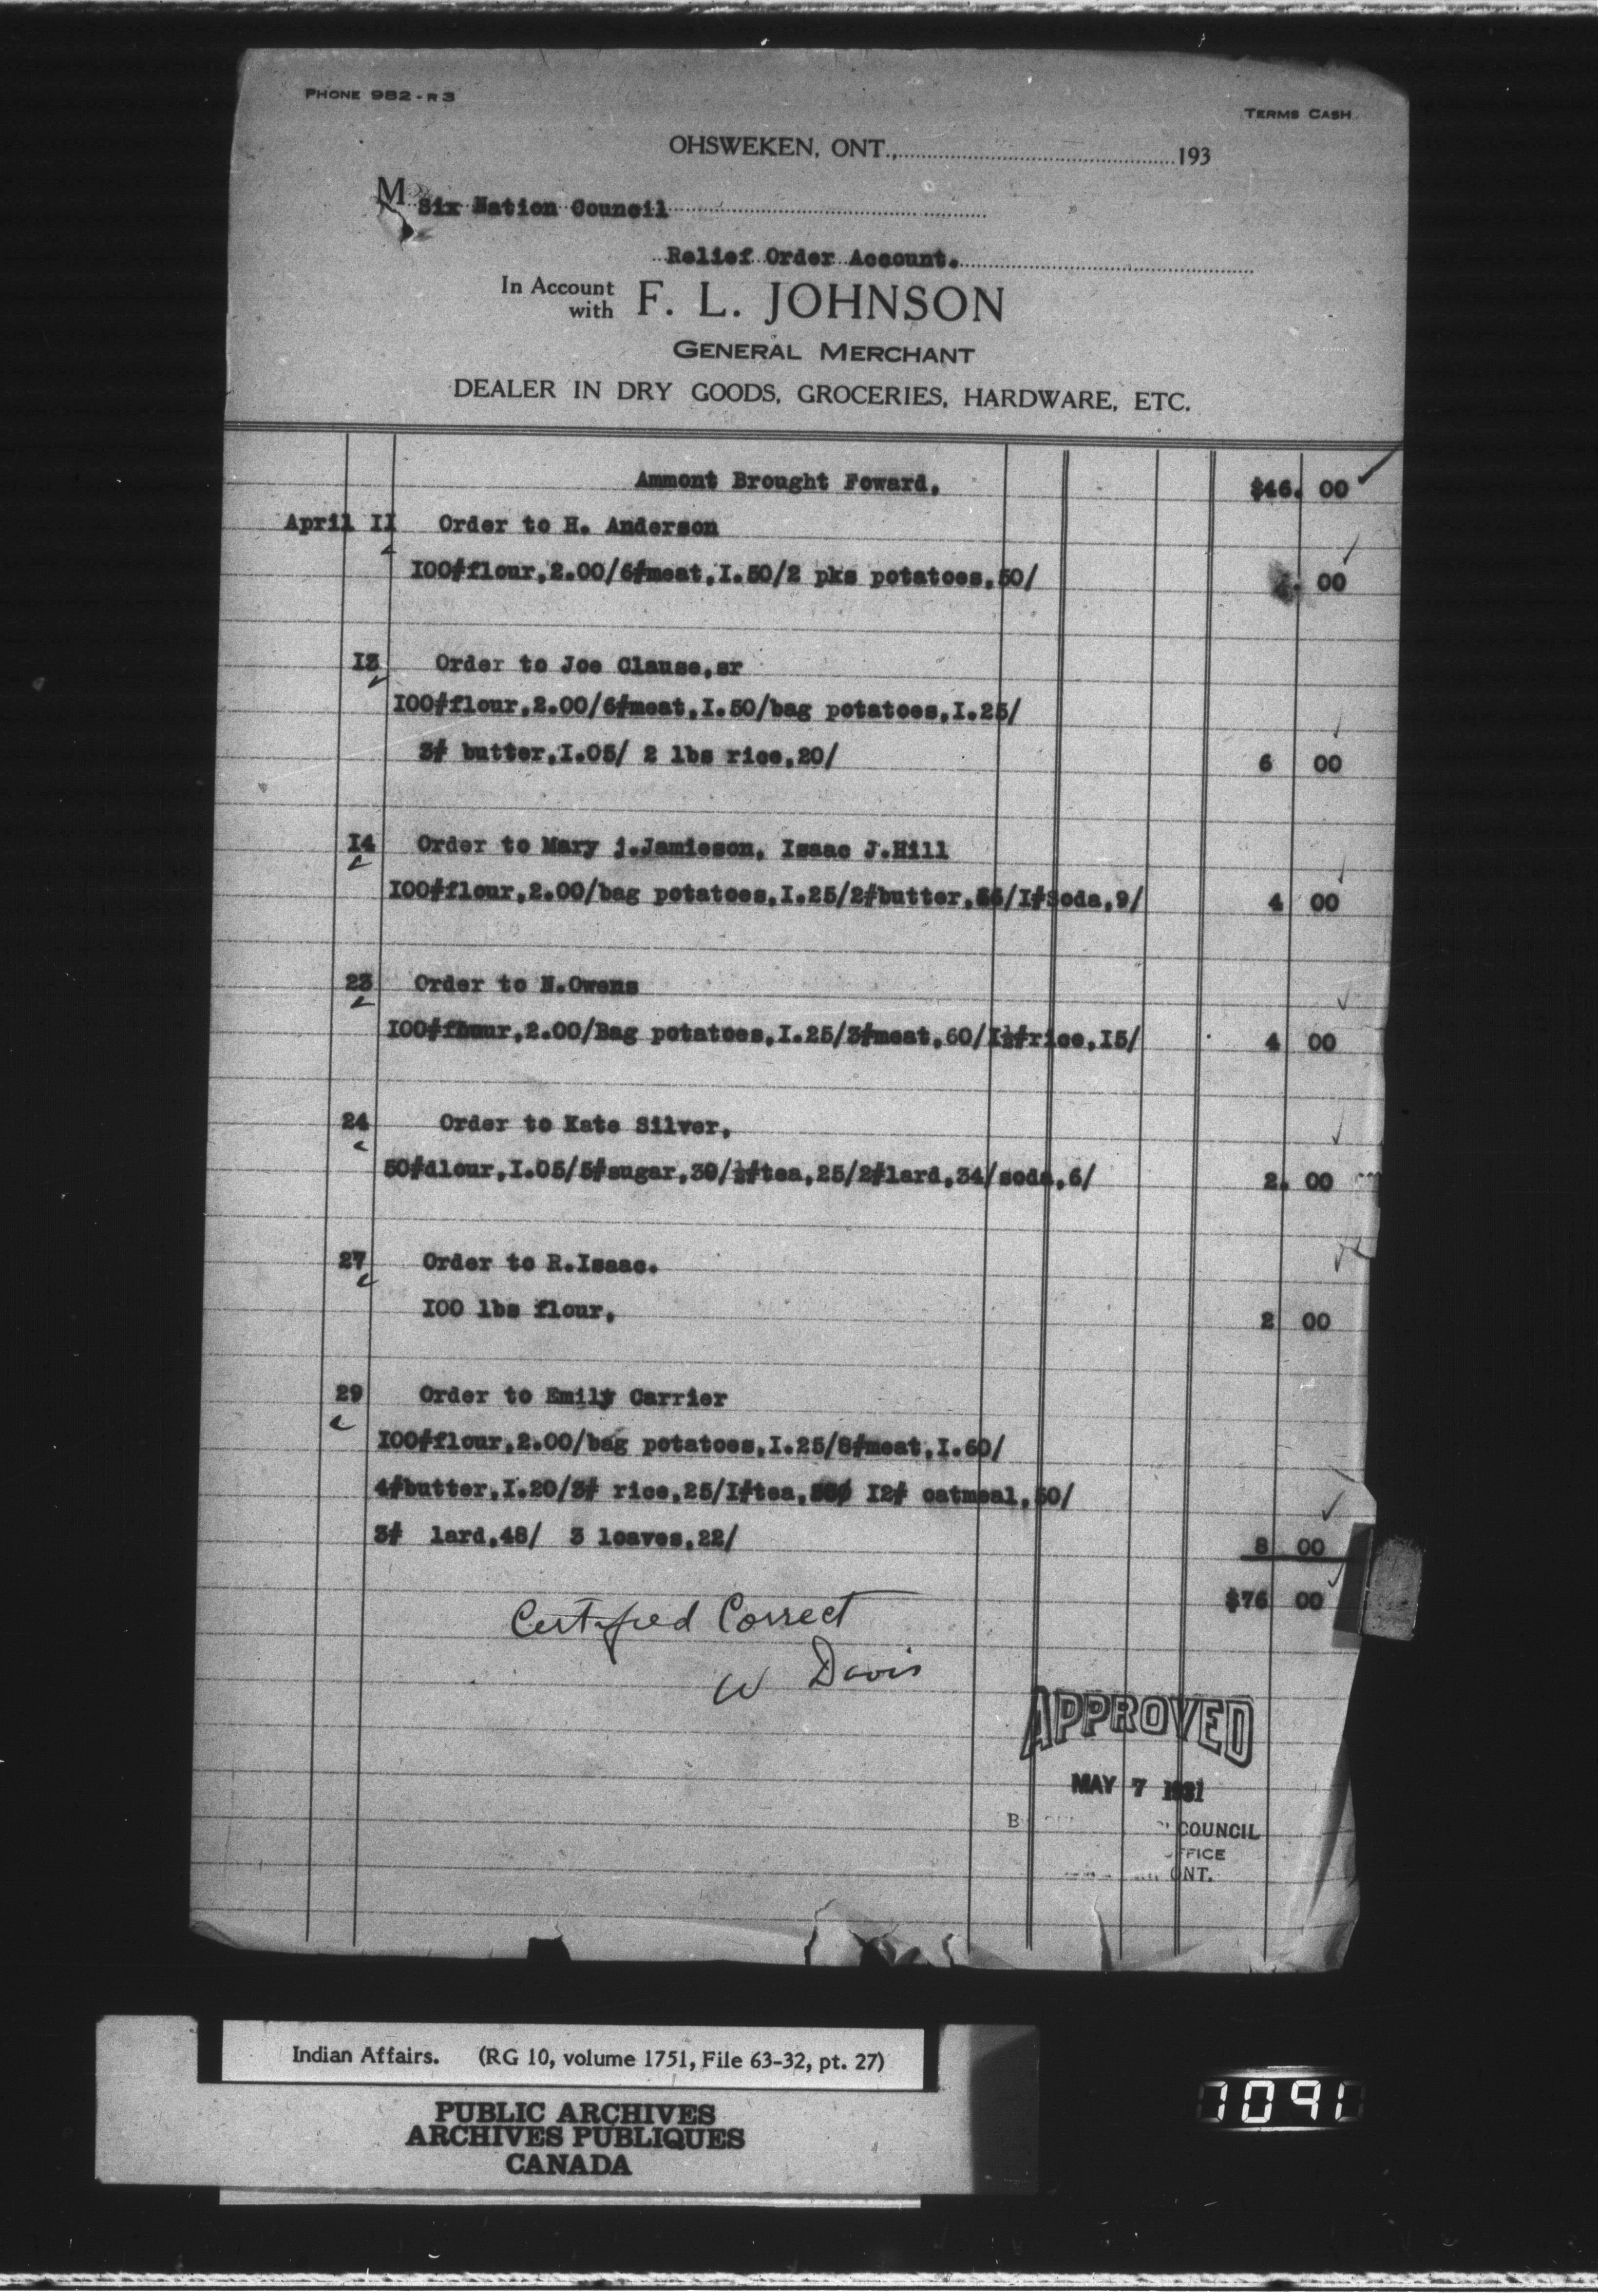 PHONE 982-R3
TERMS CASH.
OHSWEKEN, ONT., 193
M Six Nation Council
Relief Order Account.
In Account with F. L. JOHNSON
GENERAL MERCHANT
DEALER IN DRY GOODS, GROCERIES, HARDWARE, ETC.
Ammont Brought Foward, $46. 00
April II Order to H. Anderson
I00#flour,2.00/6#meat,I.50/2 pks potatoes,50/ 00
I3 Order to Joe Clause,sr
I00#flour,2.00/6#meat,I.50/bag potatoes,I.25/
3# butter,I.05/ 2 lbs rice,20/ 6 00
I4 Order to Mary j.Jamieson, Isaac J.Hill
I00#flour,2.00/bag potatoes,I.25/2#butter,/I#Soda,9/ 4 00
23 Order to N.Owens
I00#,2.00/Bag potatoes,I.25/3#meat,60/I½#rice,I5/ 4 00
24 Order to Kate Silver,
50#dlour,I.05/5#sugar,30/½#tea,25/2#lard,34/soda,6/ 2. 00
27 Order to R.Isaac.
I00 lbs flour, 2 00
29 Order to Emily Carrier
I00#flour,2.00/bag potatoes,I.25/8#meat,I.60/
4#butter,I.20/3# rice,25/I#tea, I2# oatmeal,50/
3# lard,48/ 3 loaves,22/ 8 00
$76 00
Certified Correct
W Davis
APPROVED
MAY 7 1931
COUNCIL
ONT.
Indian Affairs. (RG 10, volume 1751, File 63-32, pt. 27)
PUBLIC ARCHIVES
ARCHIVES PUBLIQUES
CANADA
1091